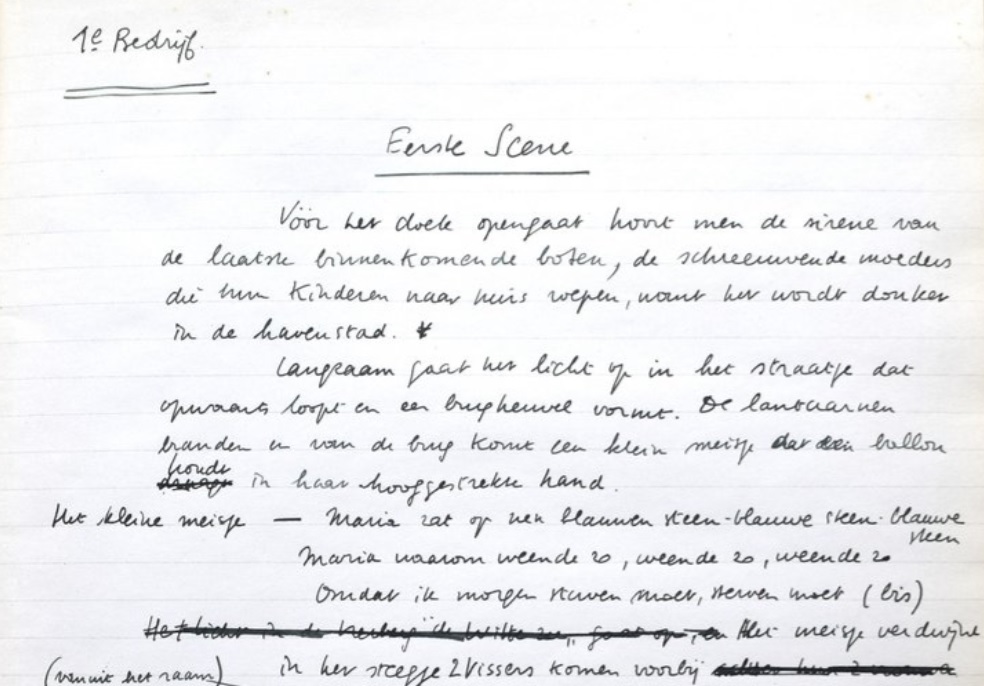 1e Bedrijf.
Eerste Scene
Vóór het doek opengaat hoort men de sirene van
de laatste binnenkomende boten, de schreeuwende moeders
die hun kinderen naar huis roepen, want het wordt donker
in de havenstad.
Langzaam gaat het licht op in het straatje dat
opwaarts loopt en een brugheuvel vormt. De lantaarnen
branden en van de brug komt een klein meisje dat een ballon
houdt
in haar hooggestrekte hand.
Het kleine meisje — Maria zat op nen blauwen steen-blauwe steen-blauwe
steen
Maria waarom weende zo, weende zo, weende zo
Omdat ik morgen sterven moet, sterven moet (bis)
Het licht in de herberg "de Witte zee" gaat op, en Het meisje verdwijnt
(vanuit het raam) in het steegje 2 Vissers komen voorbij